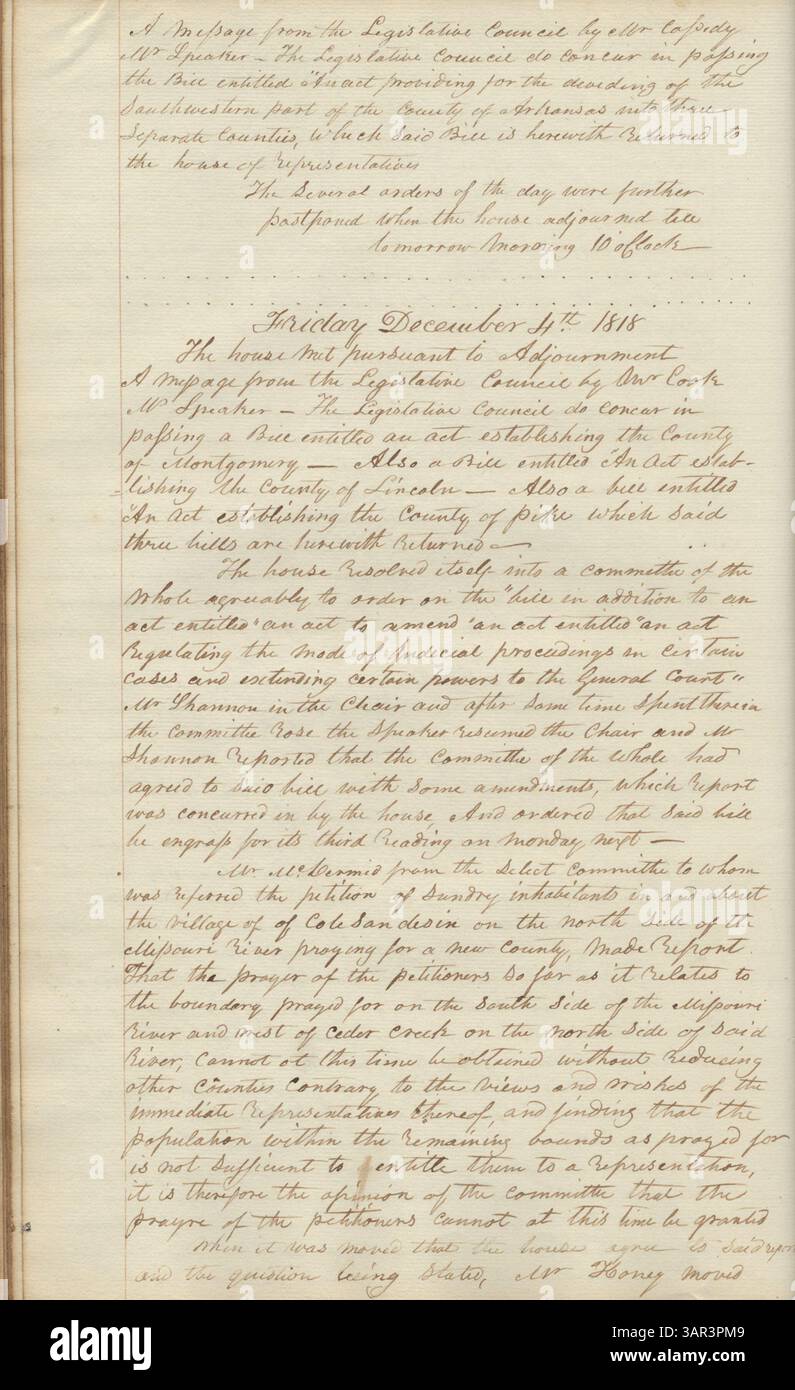 A Message from the Legislative Council by Mr Cassedy
Mr Speaker – The Legislative Council do concur in passing
the Bill entitled "An act providing for the devideing of the
Southwestern part of the County of Arkansas into three
Separate Counties, which Said Bill is herewith Returned to
the house of Representatives
The Several orders of the day were further
postponed when the house adjourned till
tomorrow Morning 10 oClock —
Friday December 4th 1818
The house Met pursuant to Adjournment
A Message from the Legeslative Council by Mr Cook
Mr Speaker — The Legislative Council do concur in
passing a Bill entitled an act establishing the County
of Montgomery — Also a Bill entitled "An Act estab-
lishing the County of Lincoln — Also a bill entitled
"An Act establishing the County of pike which Said
three bills are herewith Returned —
The house Resolved itself into a committe of the
Whole agreeably to order on the "bill in addition to an
act entitled "an act to amend "an act entitled "an act
Regulating the Mode of Judicial proceedings in Certain
Cases and extending certain powers to the General Court"
Mr Shannon in the Chair and after Some time Spent therein
the Committee Rose the Speaker resumed the Chair and Mr
Shannon Reported that the Committe of the Whole had
agreed to Said bill with Some amendments, which Report
was concurred in by the house, And ordered that Said bill
be engross for its third Reading on Monday next —
Mr McDermid from the Select Committe to whom
was Referred the petition of Sundry inhabitants in and about
the village of of Cole San desin on the north Side of the
Missouri River praying for a new County, Made Report
That the prayer of the petitioners So far as it Relates to
the boundary prayed for on the South Side of the Missouri
River and west of Ceder Creek on the north Side of Said
River, Cannot at this time be obtained without Reducing
other Counties Contrary to the views and wishes of the
immediate Representatives thereof, and finding that the
population within the Remaining bounds as prayed for
is not Sufficient to entitle them to a Representation,
it is therefore the opinion of the committe that the
prayre of the petitioners cannot at this time be granted
When it was moved that the house agree to Said report
and the question being Stated, Mr Honey moved
alamy
Image ID: 3AR3PM9
www.alamy.com